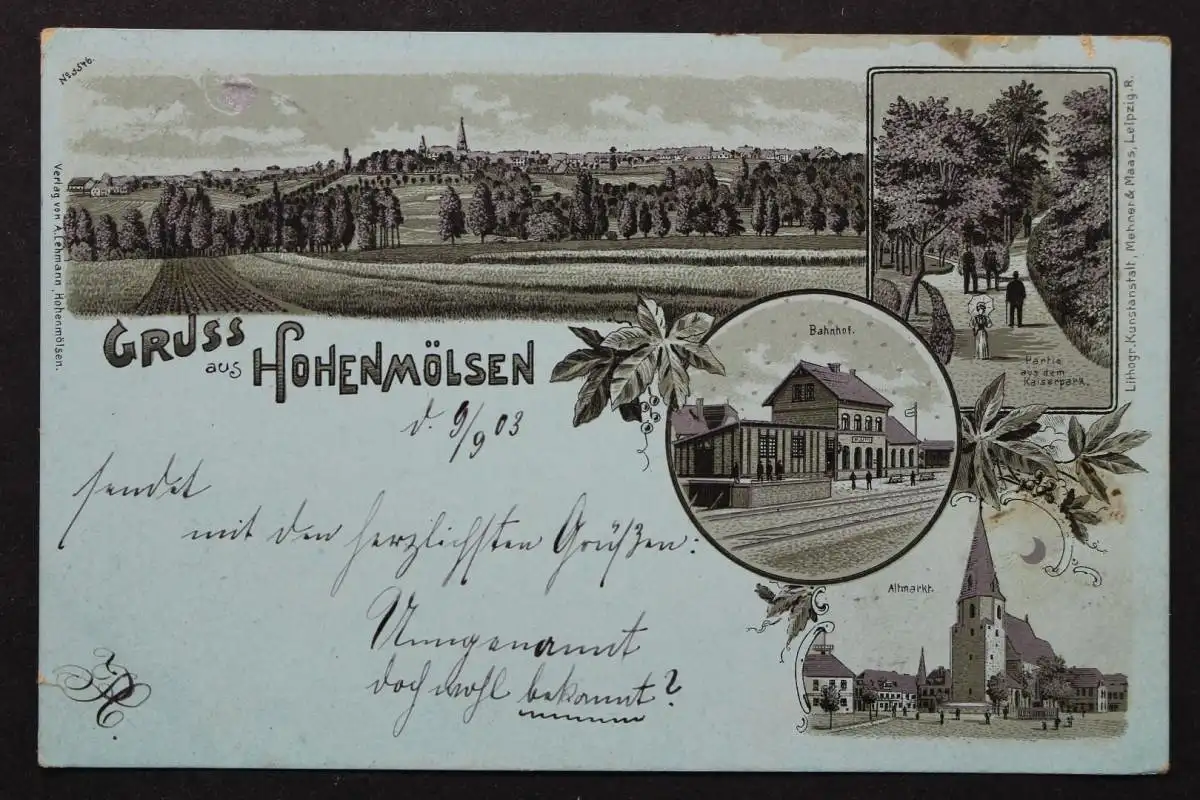 No. 5546.
Verlag von A. Lehmann, Hohenmölsen.
Lithogr. Kunstanstalt, Mehner & Maas, Leipzig. R.
GRUSS
aus HOHENMÖLSEN
Partie
aus dem
Kaiserpark.
Bahnhof.
Altmarkt.
d. 9/9 03
sendet
mit den herzlichsten Grüßen:
Unngenannt
doch wohl bekannt?